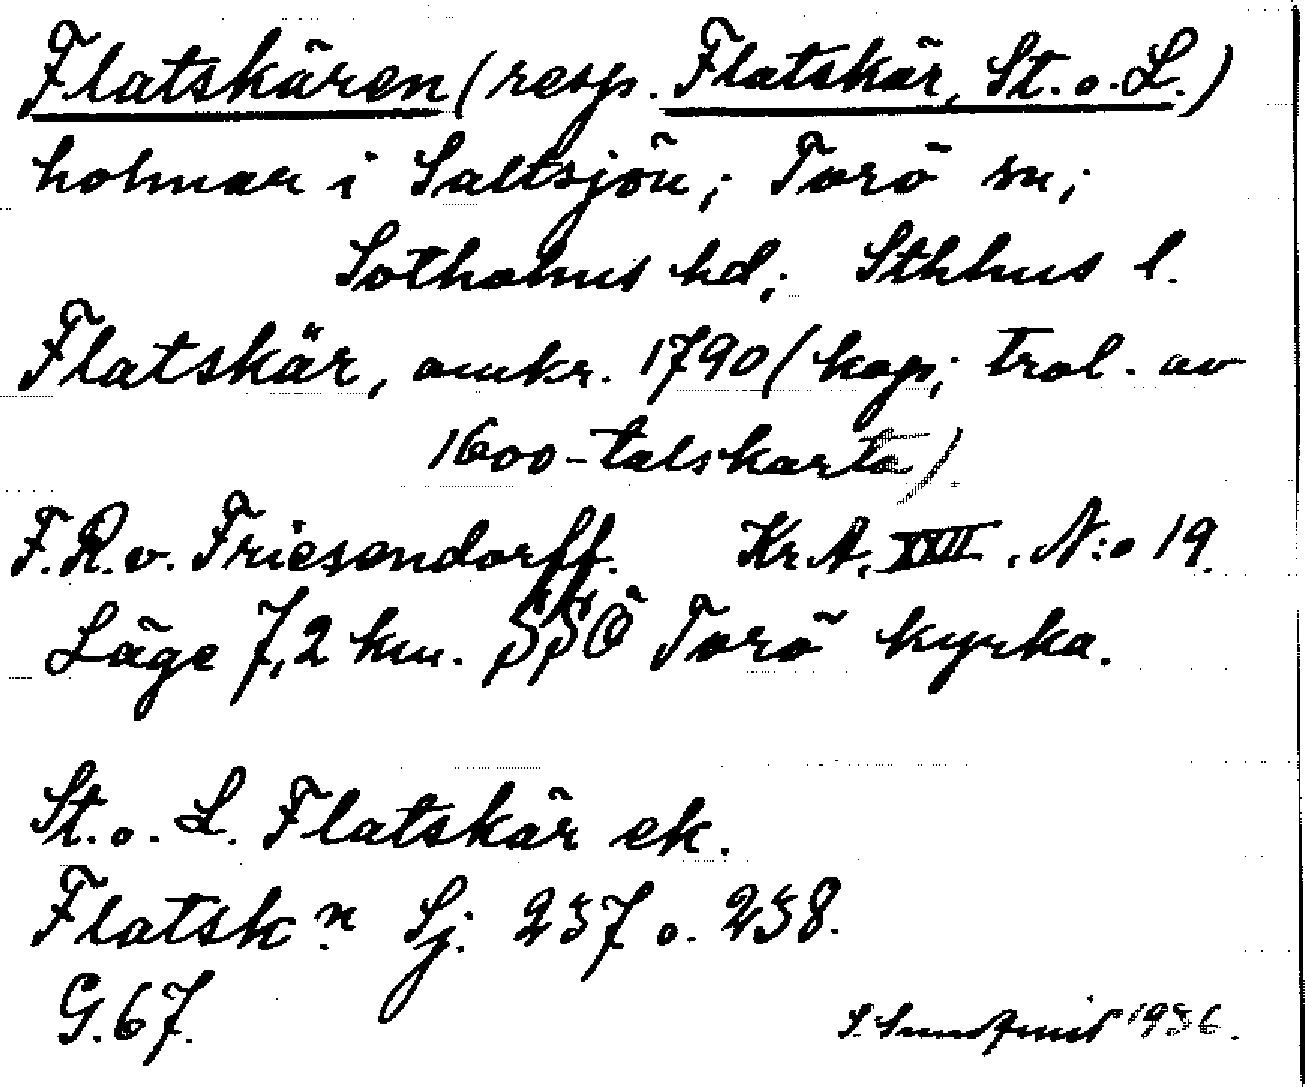 Flatskären (resp. Flatskär, St. o. L.)
holmar i Saltsjön; Torö sn;
Sotholms hd; Sthlms l.
Flatskär, omkr. 1790 (kop; trol. av
1600-talskarta)
F.R. v. Friesendorff. Kr.A. XVII. N:o 19.
Läge 7,2 km. SSÖ Torö kyrka.
St. o. L. Flatskär ek.
Flatsk.n Sj. 257 o. 258.
G. 67.
S. Sundqvist 1936.